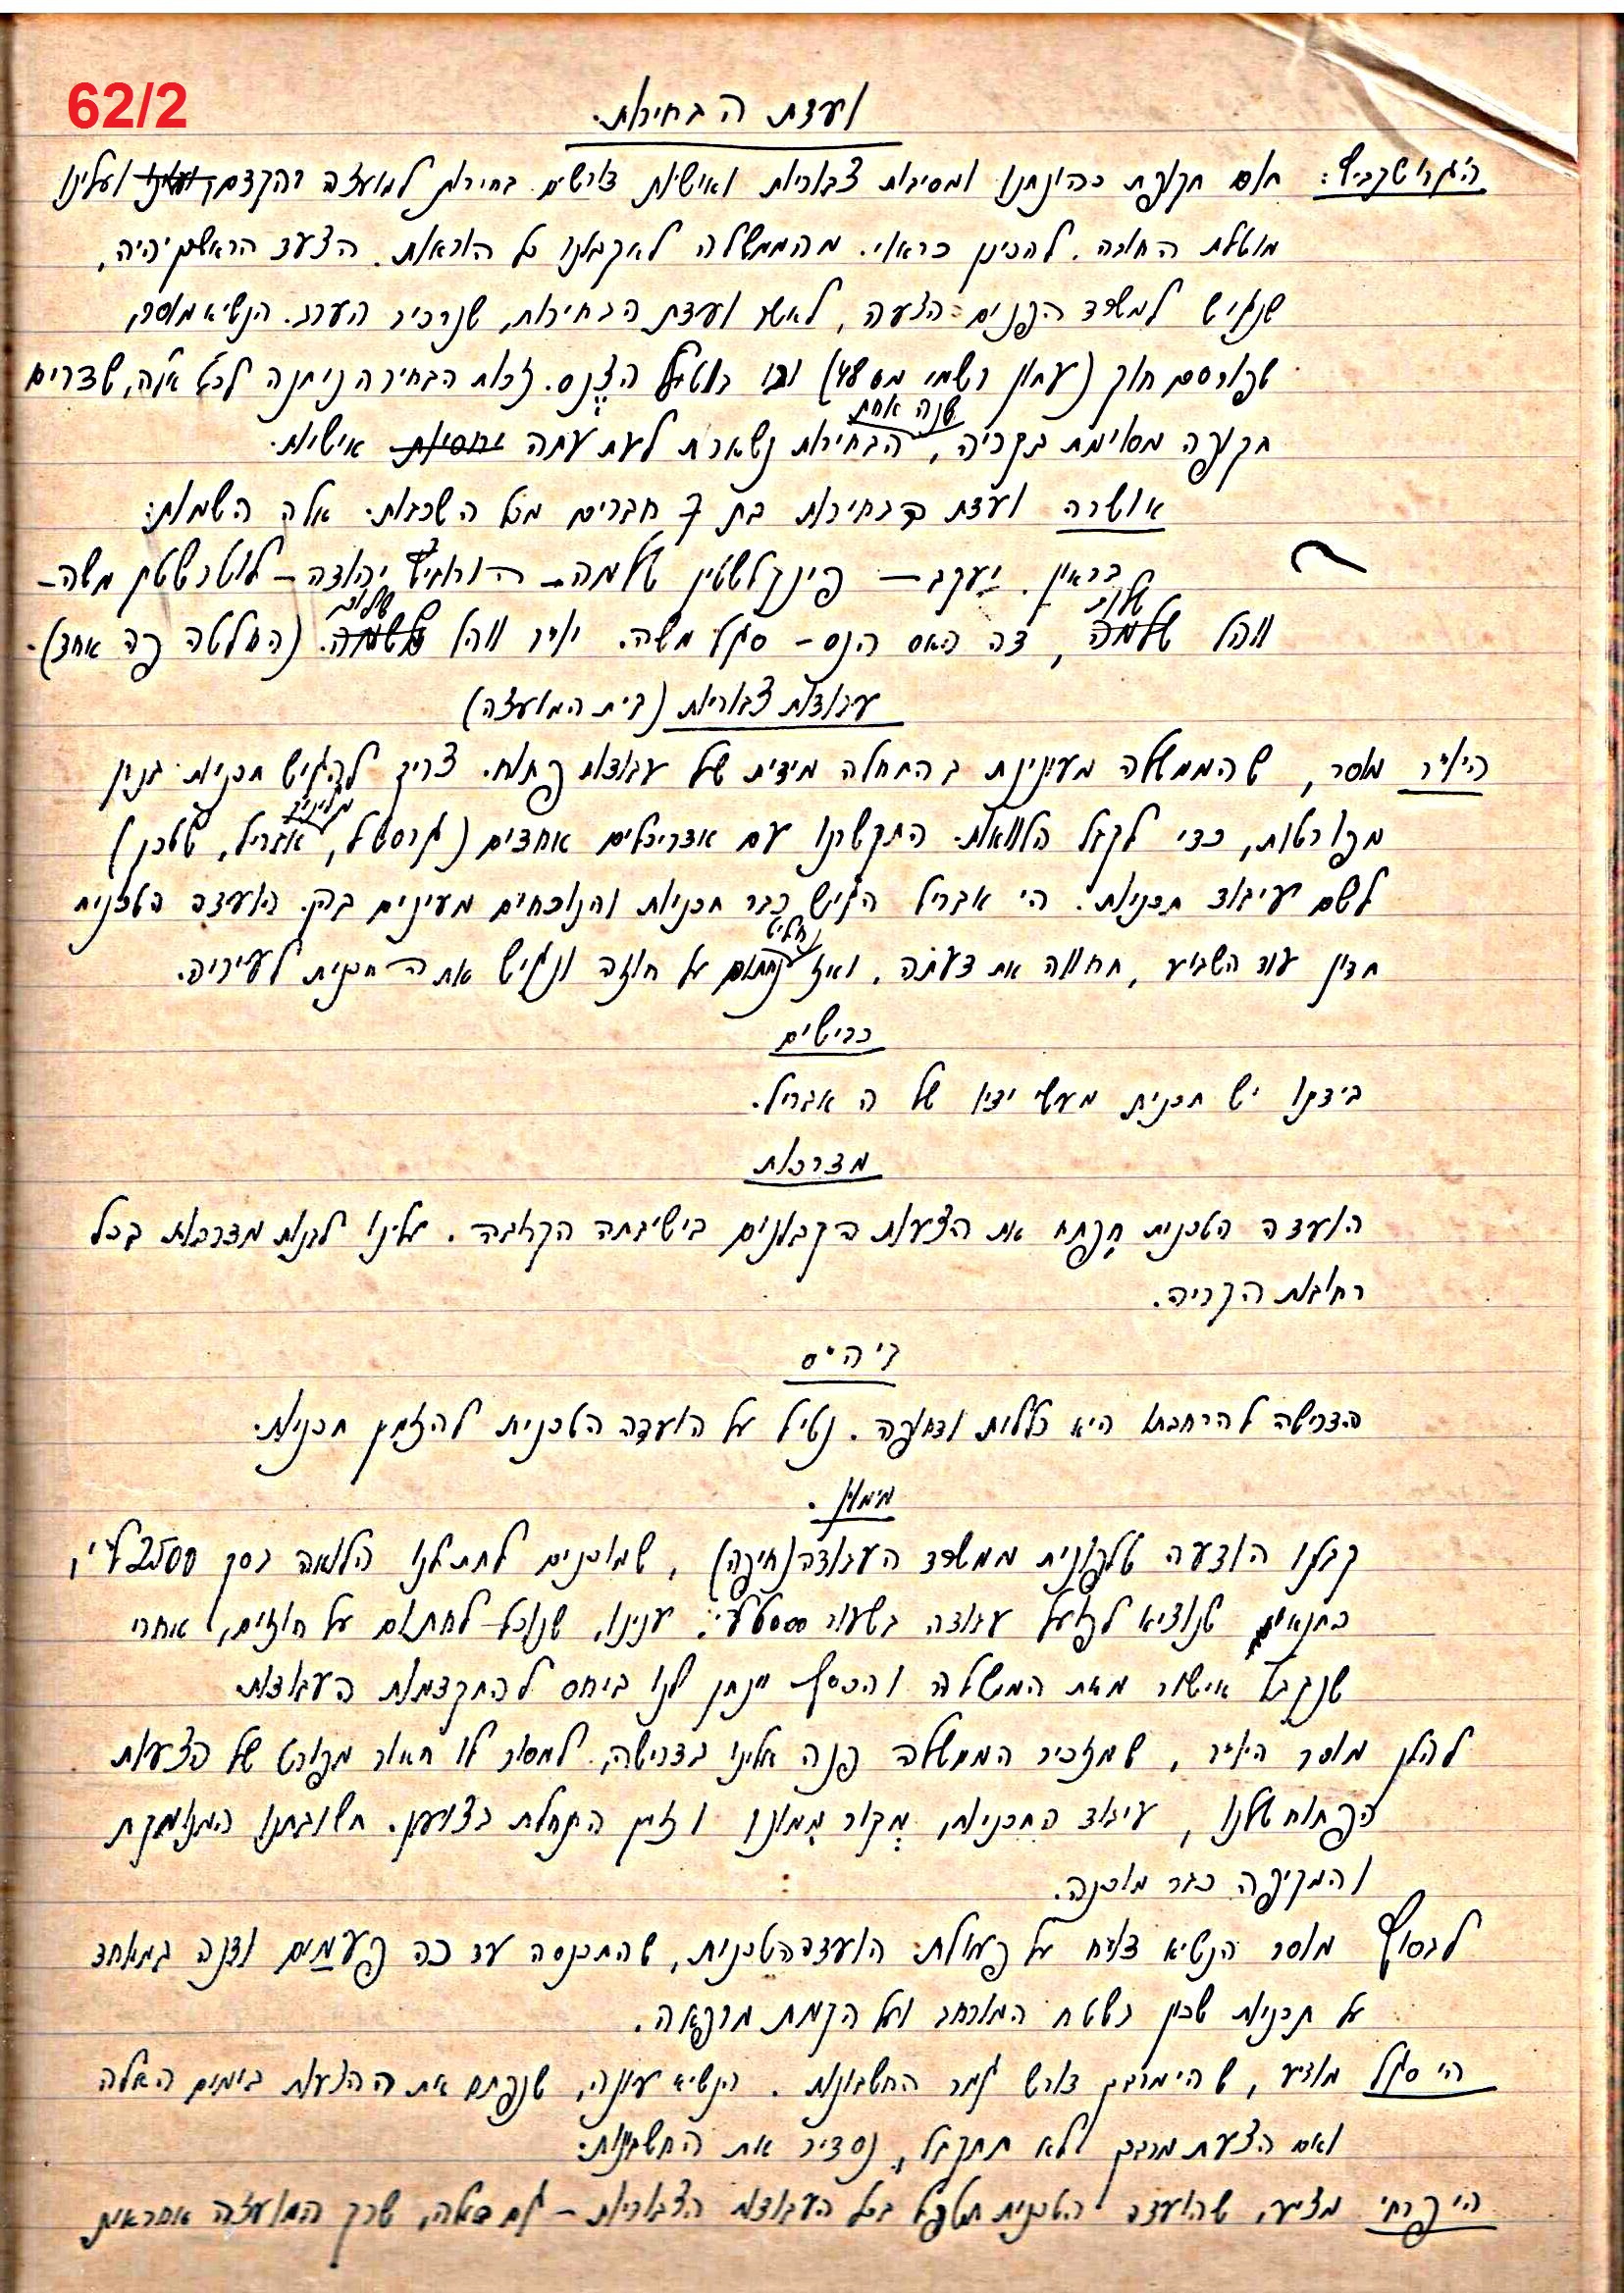 62/2
ועדת הבחירות.
ה' גרושקביץ: תום תקופת כהונתנו ומסיבות צבוריות ואישיות דורשים בחירות למועצה בהקדם ועלינו
מוטלת החובה להתכונן כראוי. מהממשלה לא קבלנו כל הוראות. הצעד הראשון יהיה,
שנגיש למשרד הפנים הצעה, לאשר ועדת הבחירות, שנרכיב הערב. הנשיא מוסר,
שפורסם חוק (עתון רשמי מס 48) ובו בוטל הצנס. זכות הבחירה ניתנה לכל אלה, שדרים
תקופה מסוימת בקריה, שנה אחת הבחירות נשארות לעת עתה אישיות.
אושרה ועדת הבחירות בת 7 חברים מכל השכבות. אלה השמות:
בראון יעקב – פינקלשטין שלמה – הורוביץ יהודה – לוטרשטין משה –
ווהל שלום, דה האס הנס – סגל משה. יו"ר ווהל שלום. (החלטה פה אחד).
עבודות צבוריות (בית המועצה)
היו"ר מוסר, שהממשלה מעונינת בהתחלה מידית של עבודות פתוח. צריך להגיש תכניות בנין
מפורטות, כדי לקבל הלוואות. התקשרנו עם אדריכלים אחדים (גרסטל, אבריל, שטכן)
לשם עיבוד תכניות. הי אבריל הגיש כבר תכניות והנוכחים מעינים בהן. הועדה הטכנית
תדון עוד השבוע, תחווה את דעתה, ואז נחליט על חוזה ונגיש את התכנית לעיריה.
כבישים
בידנו יש תכנית מעשי ידיו של ה אבריל.
מדרכות
הועדה הטכנית תפתח את הצעות הקבלנים בישיבתה הקרובה. עלינו לבנות מדרכות בכל
רחובות הקריה.
ביה"ס
הדרישה להרחבתו היא כללית ודחופה. נטיל על הועדה הטכנית להזמין תכניות.
מימון.
קבלנו הודעה טלפונית ממשרד העבודה (חיפה), שמוכנים לתת לנו הלואה בסך 2500 ל"י,
בתנאי שנוציא לפועל עבודה בשעור 6000 ל"י. ענינו, שנוכל לחתום על חוזים, אחרי
שנקבל אישור מאת הממשלה והכסף יינתן לנו ביחס להתקדמות העבודות.
להלן מוסר היו"ר, שמזכיר הממשלה פנה אלינו בדרישה, למסור לו תאור מפורט של הצעות
הפתוח שלנו, עיבוד התכניות, מקור ממונו וזמן התחלת בצוען. תשובתנו המנומקת
והמקיפה כבר מוכנה.
לבסוף מוסר הנשיא דו"ח על פעולות הועדה הטכנית, שהתכנסה עד כה פעמים ודנה במאחד
על תכניות שכון בשטח המורחב ועל הקמת מרפאה.
הי סגל מודיע, שהי מרבך דורש גמר החשבונות. הנשיא עונה, שנפתח את ההצעות בימים האלה
ואם הצעת מרבך לא תתקבל, נסדיר את החשבונות.
הי פרחי מציע, שהועדה הטכנית תטפל בכל העבודות הצבוריות – גם באלה, שרק המועצה אחראית